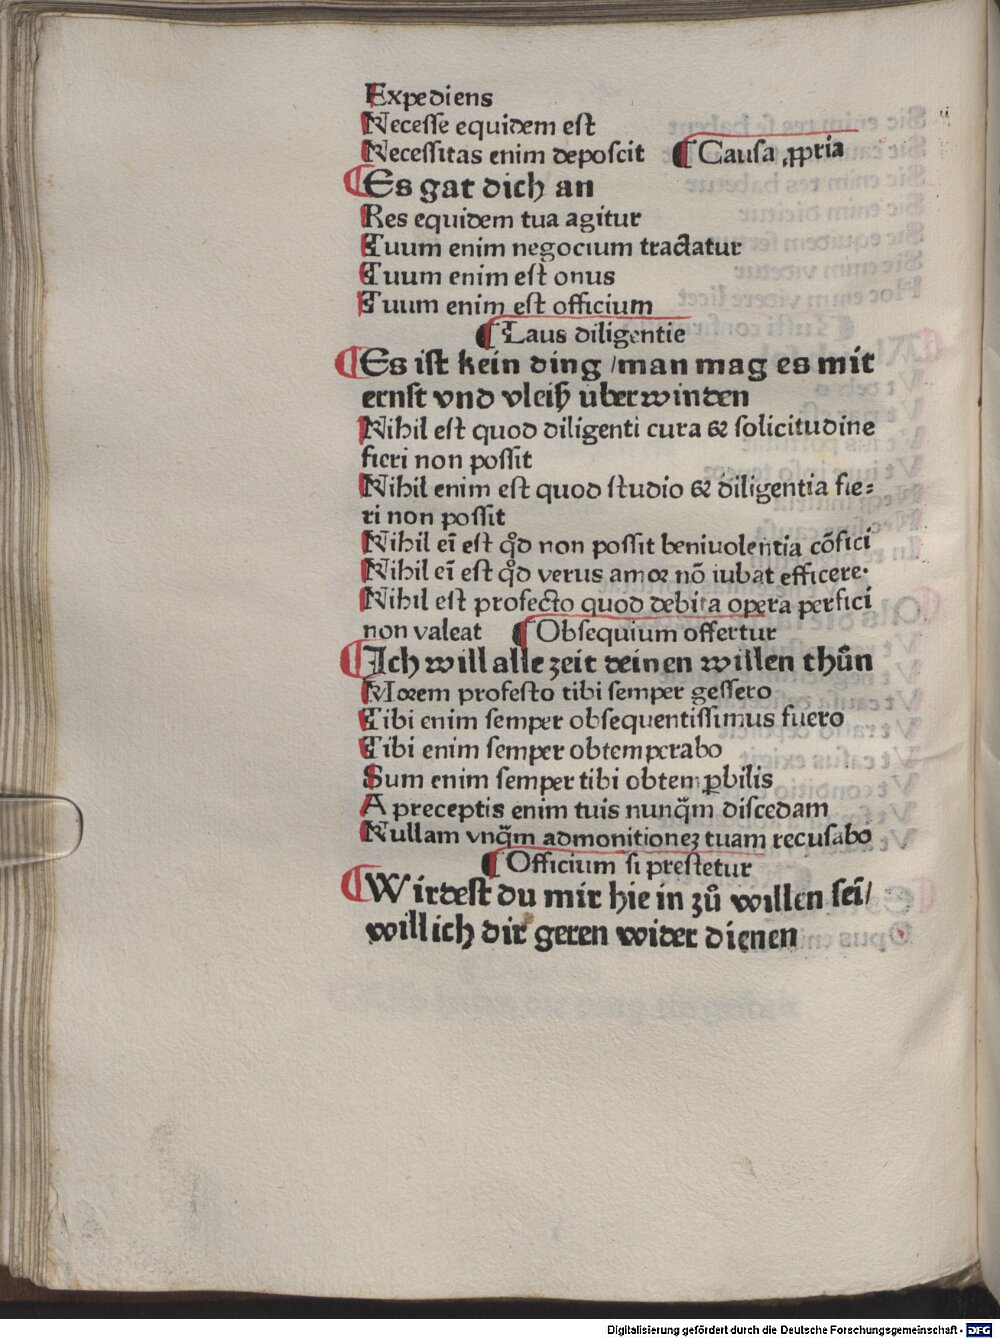 Expediens
Necesse equidem est
Necessitas enim deposcit ¶ Causa ꝓpria
¶ Es gat dich an
Res equidem tua agitur
Tuum enim negocium tractatur
Tuum enim est onus
Tuum enim est officium
¶ Laus diligentie
¶ Es ist kein ding /man mag es mit
ernst vnd vleiß uberwinden
Nihil est quod diligenti cura & solicitudine
fieri non possit
Nihil enim est quod studio & diligentia fie⸗
ri non possit
Nihil eī est qd̄ non possit beniuolentia cōfici
Nihil eī est qd̄ verus amor nō iubat efficere.
Nihil est profecto quod debita opera perfici
non valeat ¶ Obsequium offertur
¶ Ich will alle zeit deinen willen thůn
Morem profesto tibi semper gessero
Tibi enim semper obsequentissimus fuero
Tibi enim semper obtemperabo
Sum enim semper tibi obtemꝑbilis
A preceptis enim tuis nunq̄m discedam
Nullam vnq̄m admonitioneꝫ tuam recusabo
¶ Officium si prestetur
¶ Wirdest du mir hie in zů willen sei̅/
will ich dir geren wider dienen
Digitalisierung gefördert durch die Deutsche Forschungsgemeinschaft - DFG